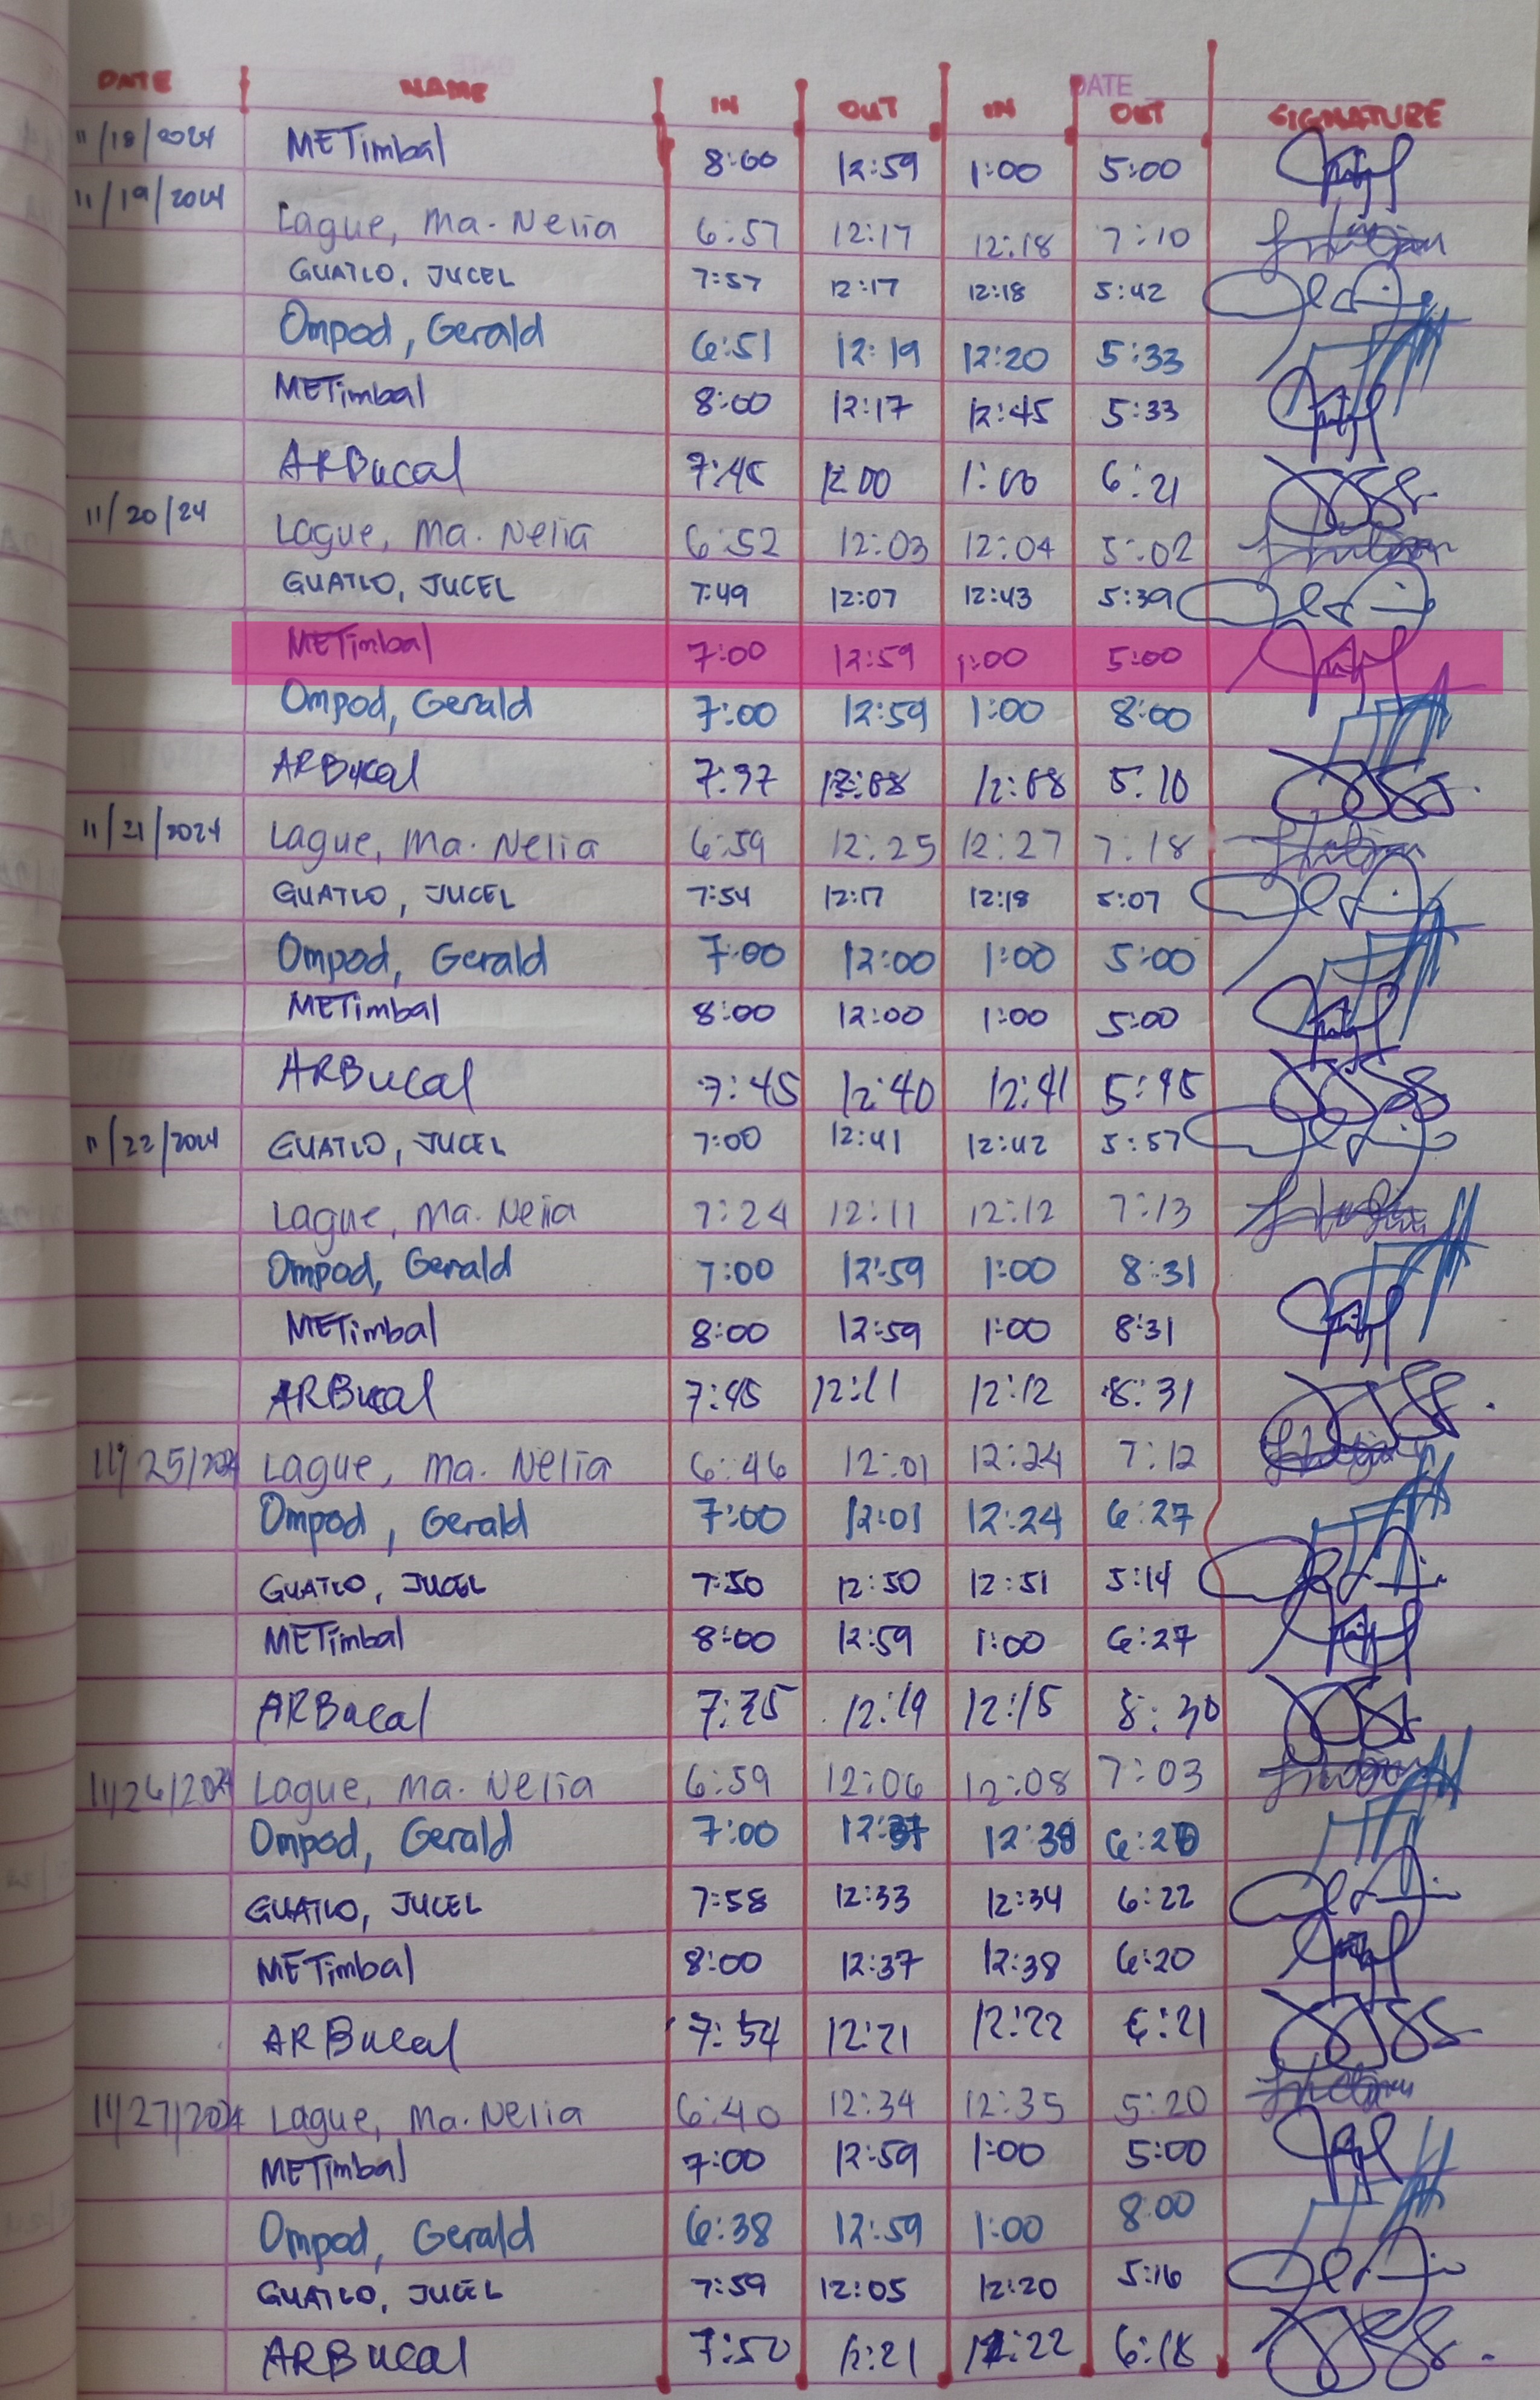 DATE
DATE NAME IN OUT IN OUT SIGNATURE
11/18/2024 METimbal 8:00 12:59 1:00 5:00
11/19/2024 Lague, Ma. Nelia 6:57 12:17 12:18 7:10
GUATLO, JUCEL 7:57 12:17 12:18 5:42
Ompod, Gerald 6:51 12:19 12:20 5:33
METimbal 8:00 12:17 12:45 5:33
ARBucal 7:45 12:00 1:00 6:21
11/20/24 Lague, Ma. Nelia 6:52 12:03 12:04 5:02
GUATLO, JUCEL 7:49 12:07 12:43 5:39
METimbal 7:00 12:59 1:00 5:00
Ompod, Gerald 7:00 12:59 1:00 8:00
ARBucal 7:37 12:08 12:08 5:10
11/21/2024 Lague, Ma. Nelia 6:59 12:25 12:27 7:18
GUATLO, JUCEL 7:54 12:17 12:18 5:07
Ompod, Gerald 7:00 12:00 1:00 5:00
METimbal 8:00 12:00 1:00 5:00
ARBucal 7:45 12:40 12:41 5:45
11/22/2024 GUATLO, JUCEL 7:00 12:41 12:42 5:57
Lague, Ma. Nelia 7:24 12:11 12:12 7:13
Ompod, Gerald 7:00 12:59 1:00 8:31
METimbal 8:00 12:59 1:00 8:31
ARBucal 7:45 12:11 12:12 8:31
11/25/2024 Lague, Ma. Nelia 6:46 12:01 12:24 7:12
Ompod, Gerald 7:00 12:01 12:24 6:27
GUATLO, JUCEL 7:50 12:50 12:51 5:14
METimbal 8:00 12:59 1:00 6:27
ARBucal 7:35 12:19 12:15 8:30
11/26/2024 Lague, Ma. Nelia 6:59 12:06 12:08 7:03
Ompod, Gerald 7:00 12:37 12:38 6:20
GUATLO, JUCEL 7:58 12:33 12:34 6:22
METimbal 8:00 12:37 12:38 6:20
ARBucal 7:54 12:21 12:22 6:21
11/27/2024 Lague, Ma. Nelia 6:40 12:34 12:35 5:20
METimbal 7:00 12:59 1:00 5:00
Ompod, Gerald 6:38 12:59 1:00 8:00
GUATLO, JUCEL 7:59 12:05 12:20 5:16
ARBucal 7:50 12:21 12:22 6:18